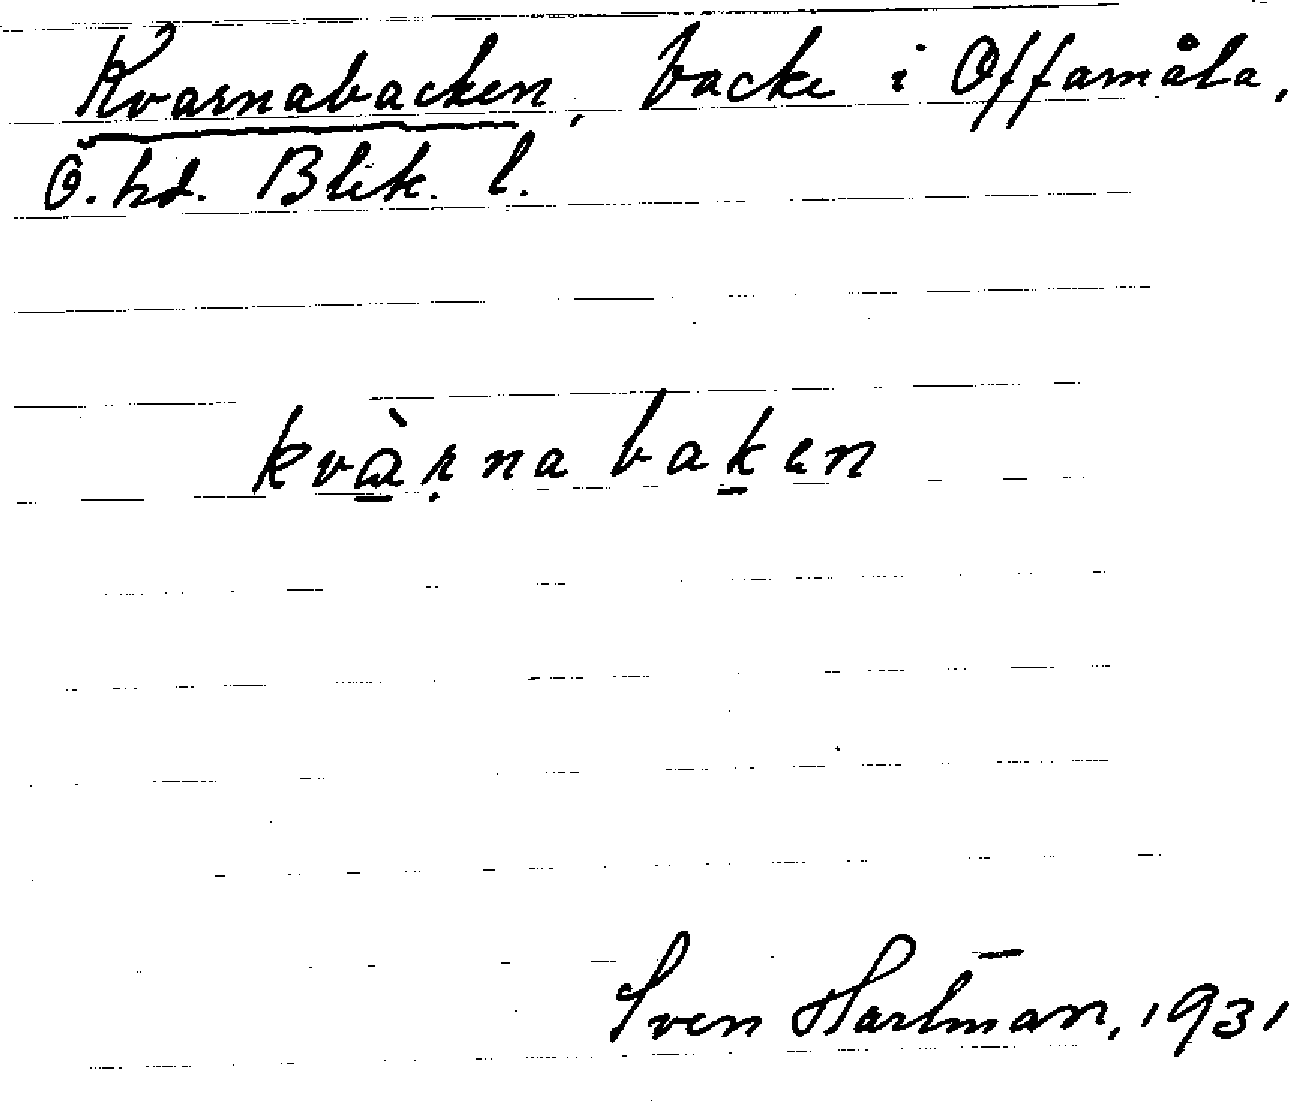 Kvarnabacken, backe i Offamåla,
Ö. hd. Blek. l.
kvàṛna baḵen
Sven Hartman, 1931